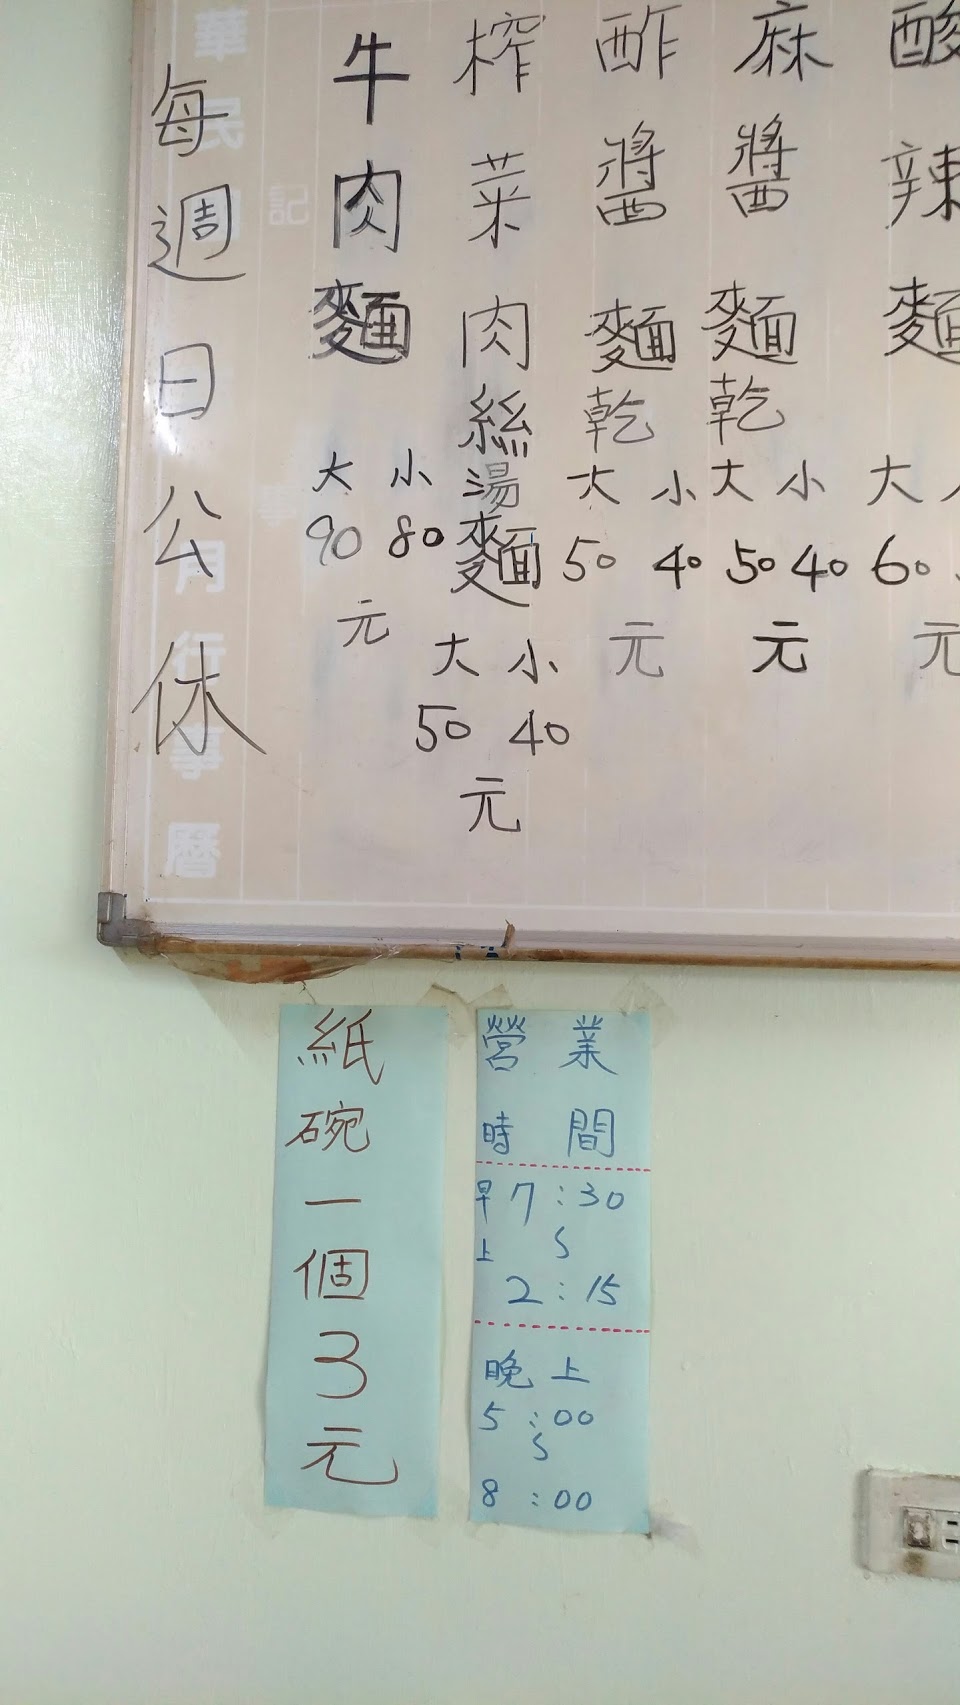 酸辣麵
大
60
元
麻醬麵乾
大 小
50 40
元
酢醬麵乾
大 小
50 40
元
榨菜肉絲湯麵
大 小
50 40
元
牛肉麵
大 小
90 80
元
記
每週日公休
華民
月行事曆
營業
時間
早上 7:30
~
2:15
晚上
5:00
~
8:00
紙碗一個3元